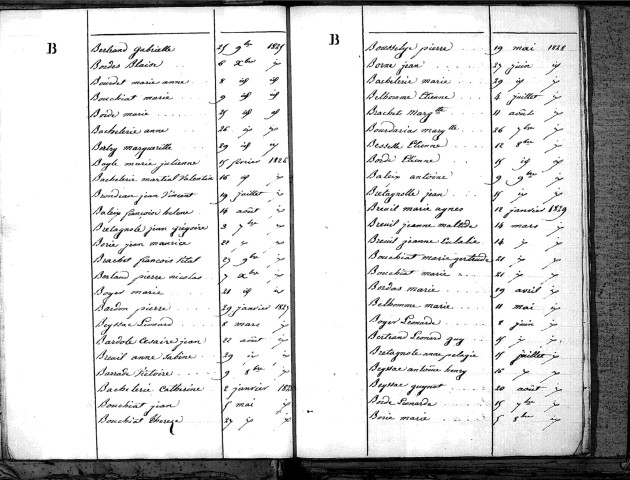 B
Bertrand Gabrielle 25 9bre 1825
Bordes Blaise 6 Xbre
Bourdet marie anne 8
Bouchiat marie 9
Borde marie 25
Bachelerie anne 26
Barby marguerite 29
Bayle marie julienne 15 février 1826
Bachelerie martial Valentin 16
Brondeau jean Vincent 19 juillet
Baleix françoise helene 14 août
Bretagnole jean grégoire 2 7bre
Borie jean maurice 22
Brachet françois Vital 27 9bre
Berland pierre nicolas 7 Xbre
Boyer marie 21
Bardon pierre 29 janvier 1827
Beyssac Léonard 8 mars
Bardole Cesaire jean 22 août
Breuil anne Sabine 29
Barrade Victoire 9 8bre
Bachelerie Catherine 2 janvier 1828
Bouchiat jean 5 mai
Bouchiat Therese 27
B
pierre 19 mai 1828
Borne jean 27 juin
Bachelerie marie 29
Belhomme Etienne 4 juillet
Brachet Margtte 11 août
Bourdarias margtte 26 7bre
Bessette Etienne 12 8bre
Borde Etienne 15
Baleix antoine 9 9bre
Bretagnolle jean 15
Breuil marie agnes 12 janvier 1829
Breuil jeanne 14 mars
Breuil jeanne Eulalie 14
Bouchiat marie gertrude 21
Bouchiat marie 21
Bordas marie 19 avril
Belhomme marie 11 mai
Boyer Léonarde 8 juin
Bertrand Léonard guy 15
Bretagnole anne pelagie 15 juillet
Beyssac antoine henry 16
Beyssac 20 août
Borde Léonarde 15 7bre
Borie marie 5 8bre